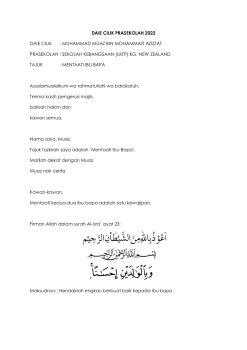 DAIE CILIK PRASEKOLAH 2022
DAIE CILIK : MUHAMMAD MUAZ BIN MOHAMMAD AZIZAT
PRASEKOLAH : SEKOLAH KEBANGSAAN (LKTP) KG. NEW ZEALAND
TAJUK : MENTAATI IBU BAPA
Assalamualaikum wa rahmatullahi wa barakatuh.
Terima kasih pengerusi majlis
barisan hakim dan
kawan semua.
Nama saya, Muaz.
Tajuk tazkirah saya adalah 'Mentaati Ibu Bapa'.
Marilah dekat dengan Muaz.
Muaz nak cerita
Kawan-kawan.
Mentaati kedua-dua ibu bapa adalah satu kewajipan.
Firman Allah dalam surah Al-Isra' ayat 23:
أَعُوْذُ بِاللهِ مِنَ الشَّيْطَانِ الرَّجِيْمِ
بِسْمِ اللهِ الرَّحْمٰنِ الرَّحِيْمِ
وَبِالْوَالِدَيْنِ إِحْسَانًا
Maksudnya : Hendaklah engkau berbuat baik kepada ibu bapa.